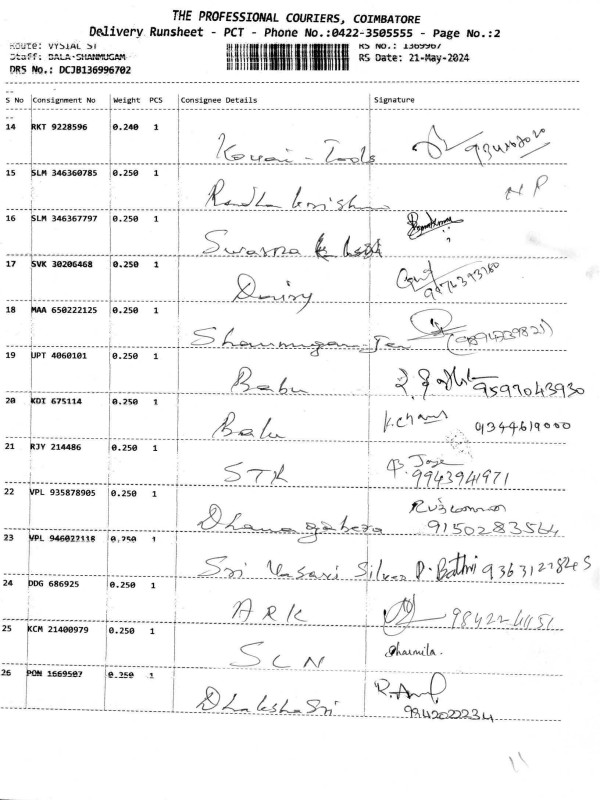 THE PROFESSIONAL COURIERS, COIMBATORE
Delivery Runsheet - PCT - Phone No.:0422-3505555 - Page No.:2
Route: VYSIAL ST RS No.: 1369967
Staff: BALA-SHANMUGAM RS Date: 21-May-2024
DRS No.: DCJB136996702
S No Consignment No Weight PCS Consignee Details Signature
14 RKT 9228596 0.240 1 Kovai - Tools
15 SLM 346360785 0.250 1 Radha krishna N P
16 SLM 346367797 0.250 1 Swarna
17 SVK 30206468 0.250 1 Dairy
18 MAA 650222125 0.250 1 Shanmugam
19 UPT 4060101 0.250 1 Babu 9597043930
20 KDI 675114 0.250 1 Balu 01344619000
21 RJY 214486 0.250 1 STR 9943941971
22 VPL 935878905 0.250 1 9150283564
23 VPL 946022118 0.250 1 Sri Vasavi Silver
24 DDG 686925 0.250 1 ARK
25 KCM 21400979 0.250 1 SLN Sharmila.
26 PON 1669507 0.250 1 Dhaksha Sri 9942022234
11